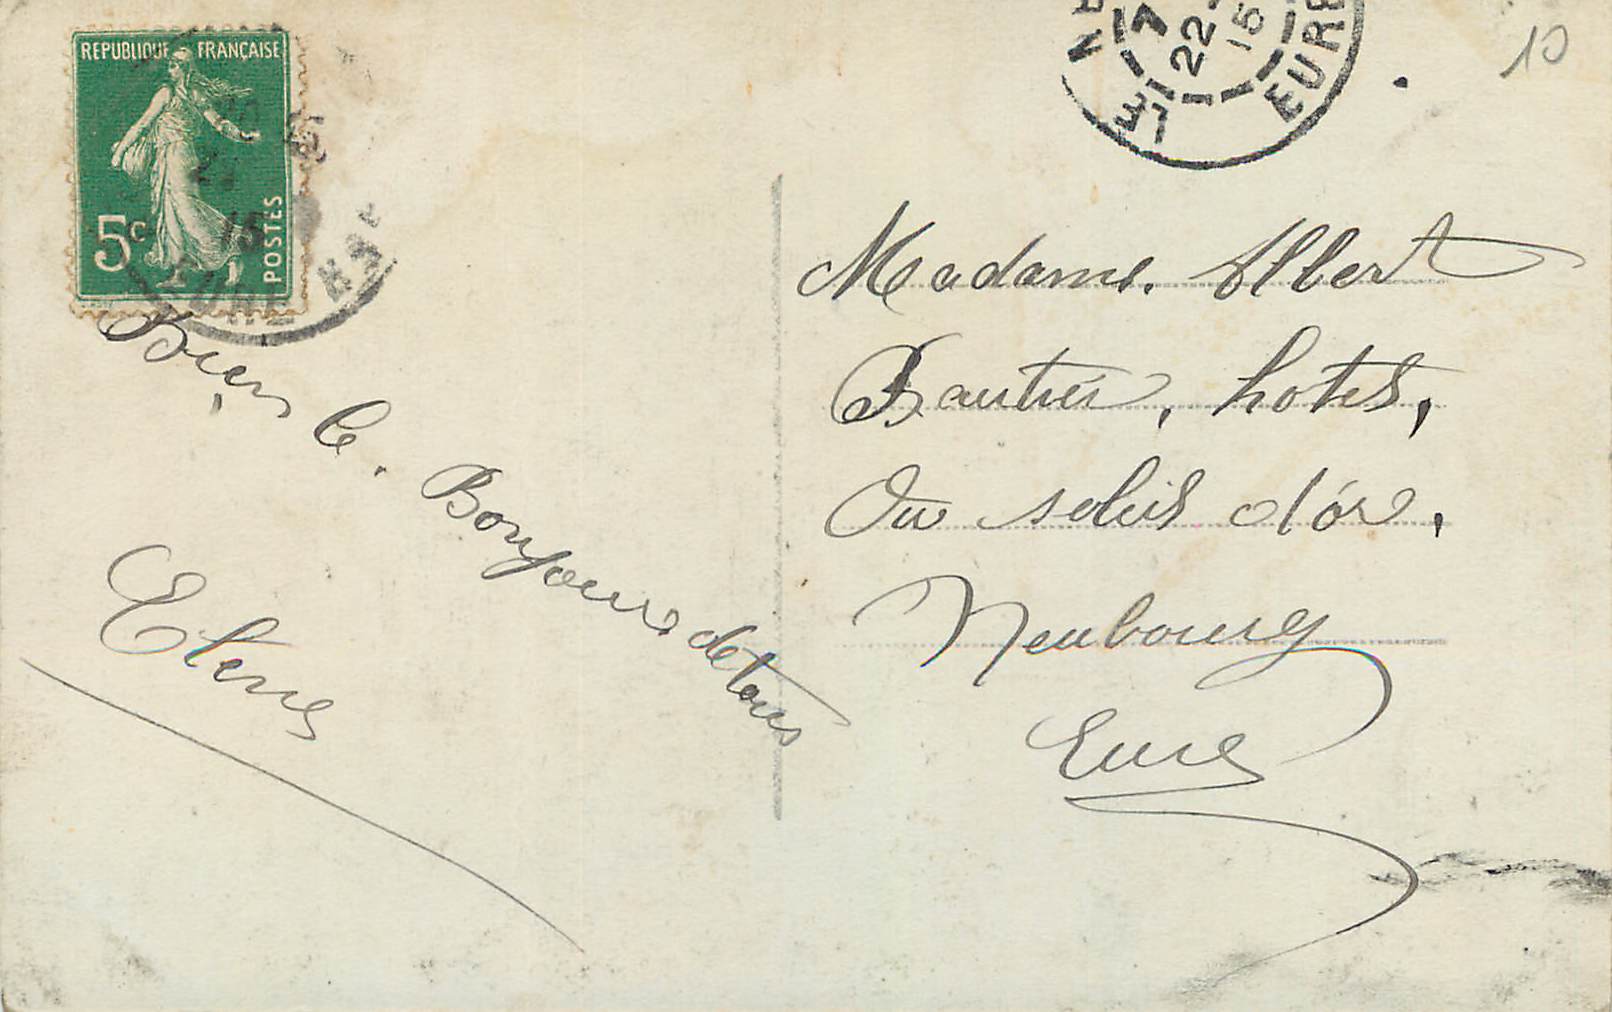 REPUBLIQUE FRANÇAISE
5c
POSTES
15
LE NE
7
22
15
EURE
10
Bien le. Bonjour de tous
Elene
Madame. Albert
Bautier, hotel,
Ou soleil d'or,
Neubourg
Eure